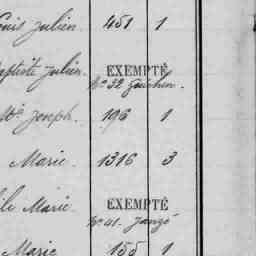 Louis Julien. 451 1
Baptiste Julien. EXEMPTÉ
N° 32 Guichen.
Joseph. 196 1
Marie. 1316 3
Marie EXEMPTÉ
N° 41. Janzé
Marie 155 1